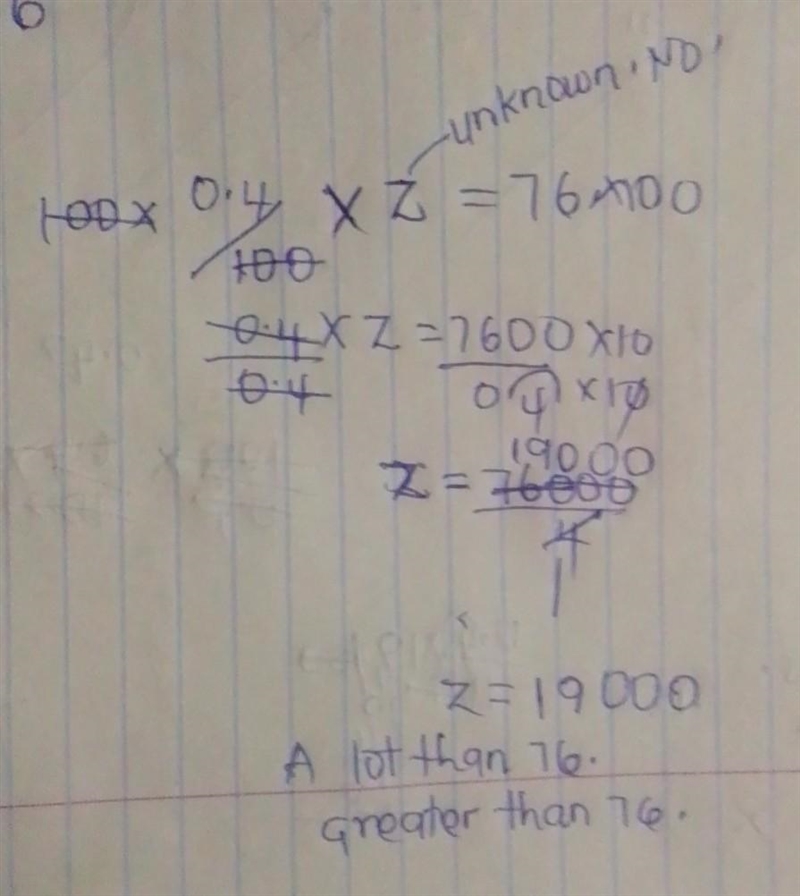 6
unknown. NO.
100 x 0.4/100 x Z = 76 x 100
0.4 x Z = 7600 x 10
0.4 0.4 x 10
19000
Z = 76000
4
1
Z = 19000
A lot than 76.
Greater than 76.